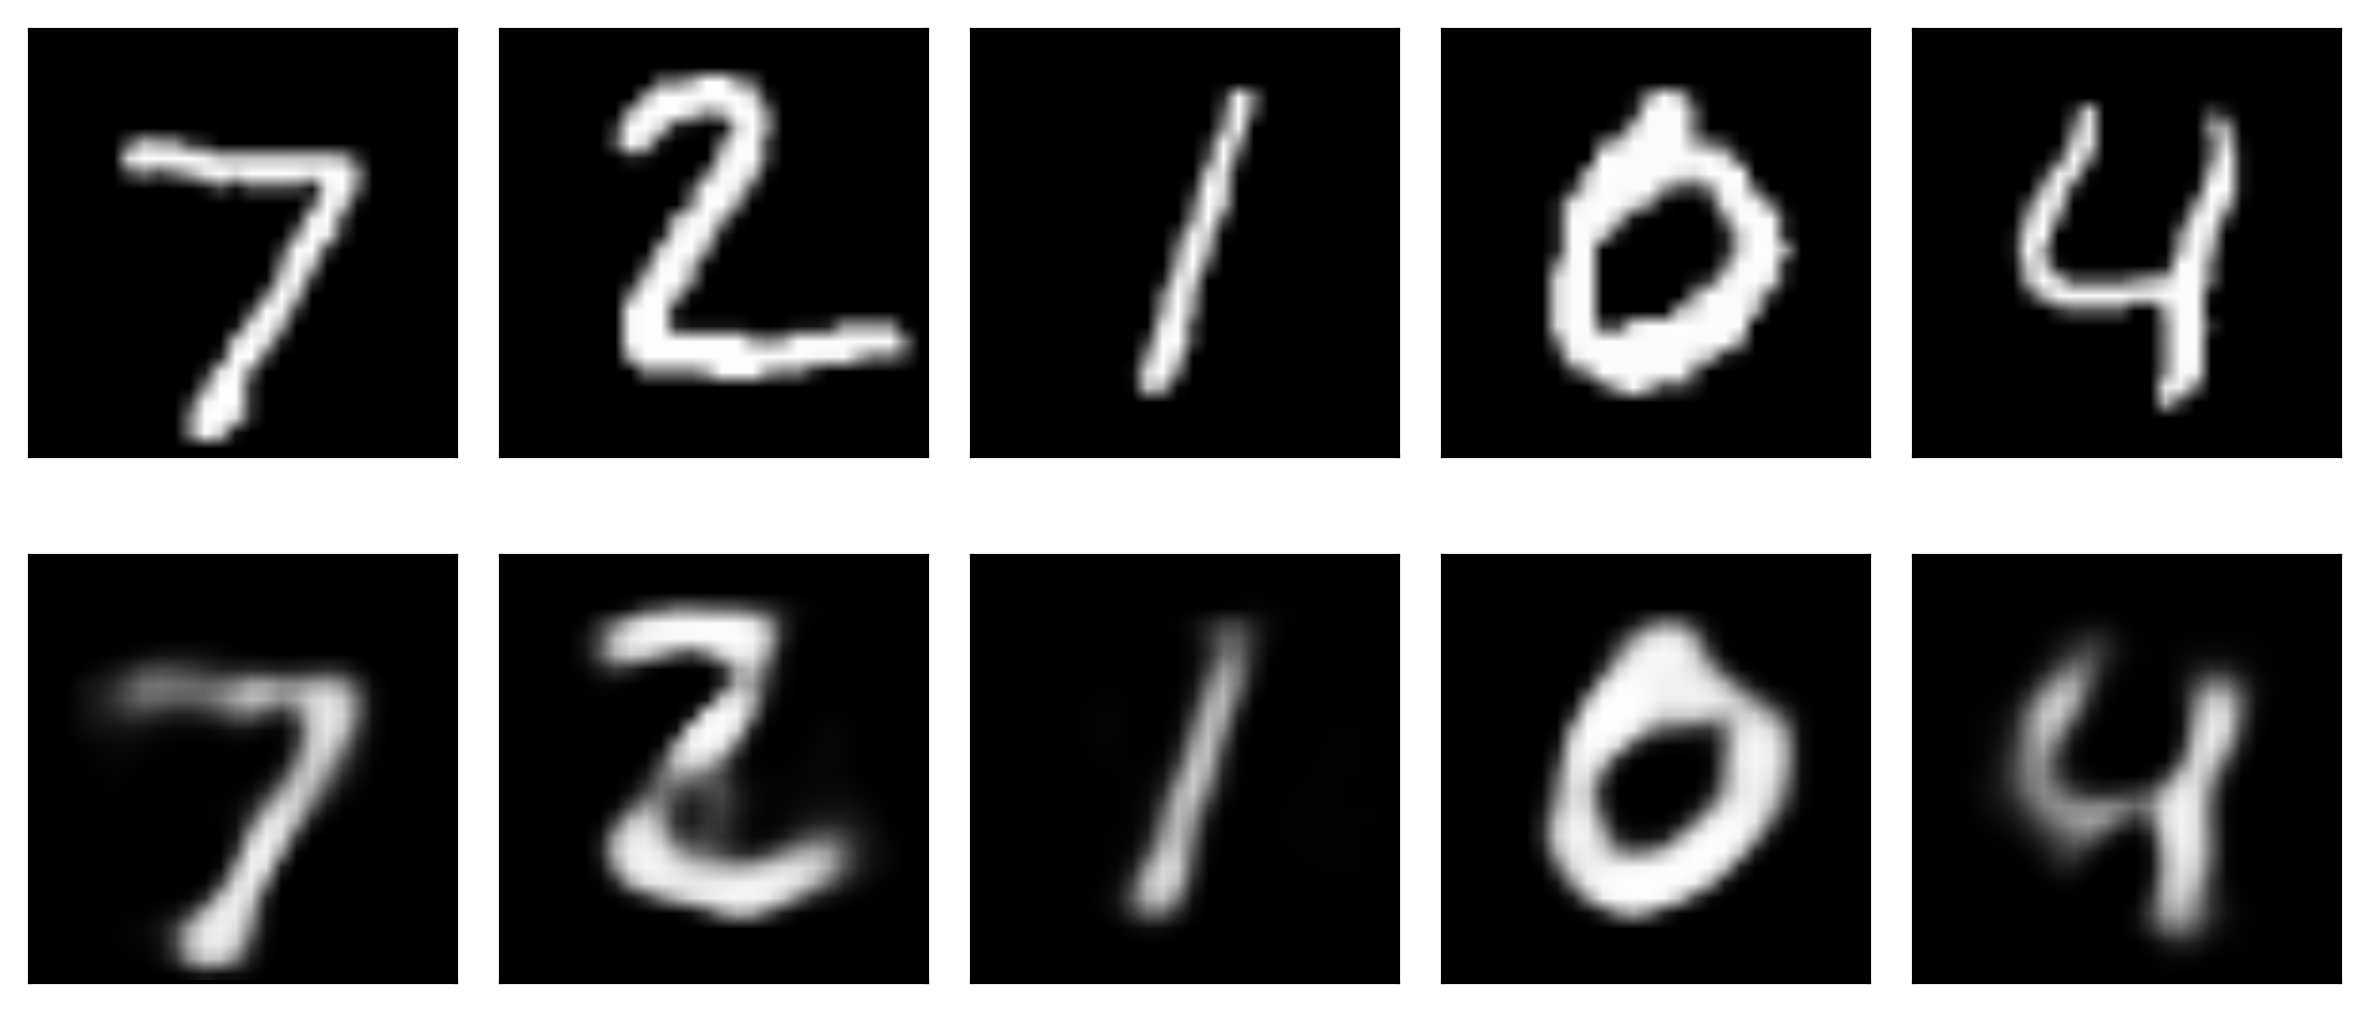 7 2 1 0 4
7 2 1 0 4